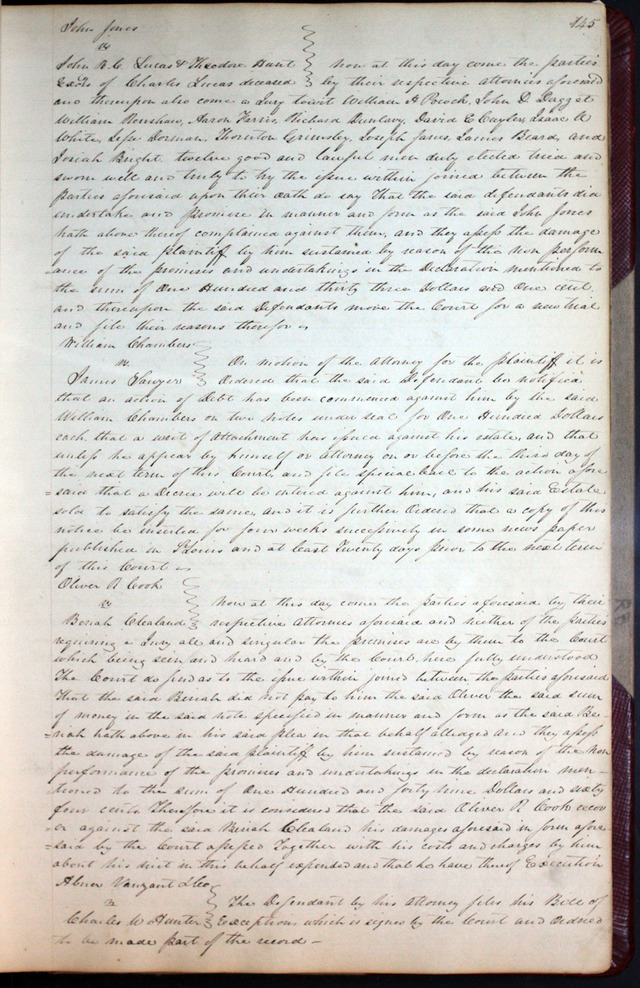 145
John Jones
vs
John B. C. Lucas & Theodore Hunt } Now at this day come the parties
Exors of Charles Lucas deceased } by their respective attornies aforesaid
and thereupon also come a Jury towit William H Pocock, John D. Dagget
William Renshaw, Aaron Farris, Richard Dunlavy, David E Cuyler, Isaac A
White, Dorman, Thornton Grimsley, Joseph James, James Beard, and
Josiah Bright twelve good and lawful men duly elected tried and
sworn well and truly to try the issue within joined between the
parties aforesaid upon their oath do say that the said defendants did
undertake and promise in manner and form as the said John Jones
hath above thereof complained against them, and they assess the damage
of the said plaintiff by him sustained by reason of the non perform
ance of the promises and undertakings in the Declaration mentioned to
the sum of One Hundred and thirty three Dollars and One cent
and thereupon the said Defendants move the Court for a new trial
and file their reasons therefor
William Chambers
vs } On motion of the attorney for the plaintiff it is
James Sawyer } Ordered that the said Defendant be notified
that an action of Debt has been commenced against him by the said
William Chambers on two notes under seal for One Hundred Dollars
each, that a writ of attachment has issued against his estate, and that
unless he appear by himself or attorney on or before the third day of
the next term of this Court, and file special bail to the action afore
=said that a Decree will be entered against him, and his said Estate
sold to satisfy the same, and it is further Ordered that a copy of this
notice be inserted for four weeks successively in some news paper
published in St Louis and at least Twenty days prior to the next term
of this Court
Oliver R. Cook
vs } Now at this day come the parties aforesaid by their
Benah Clealand } respective attornies aforesaid and neither of the parties
requiring a Jury all and singular the premises are by them to the Court
which being seen and heard and by the Court here fully understood
The Court do find as to the issue within joined between the parties aforesaid
That the said Benah did not pay to him the said Oliver the said sum
of money in the said note specified in manner and form as the said Be-
=nah hath above in his said plea in that behalf alledged and they assess
the damage of the said plaintiff by him sustained by reason of the non
performance of the promises and undertakings in the declaration men-
=tioned to the sum of One Hundred and forty nine Dollars and sixty
four cents Therefore it is considered that the said Oliver R. Cook recov
er against the said Benah Clealand his damages aforesaid in form afore
=said by the Court assessed Together with his costs and charges by him
about his suit in this behalf expended and that he have thereof Execution
Abner Vanzant & Co
vs } The Defendant by his attorney files his Bill of
Charles W Hunter } Exceptions which is signed by the Court and Ordered
to be made part of the record —